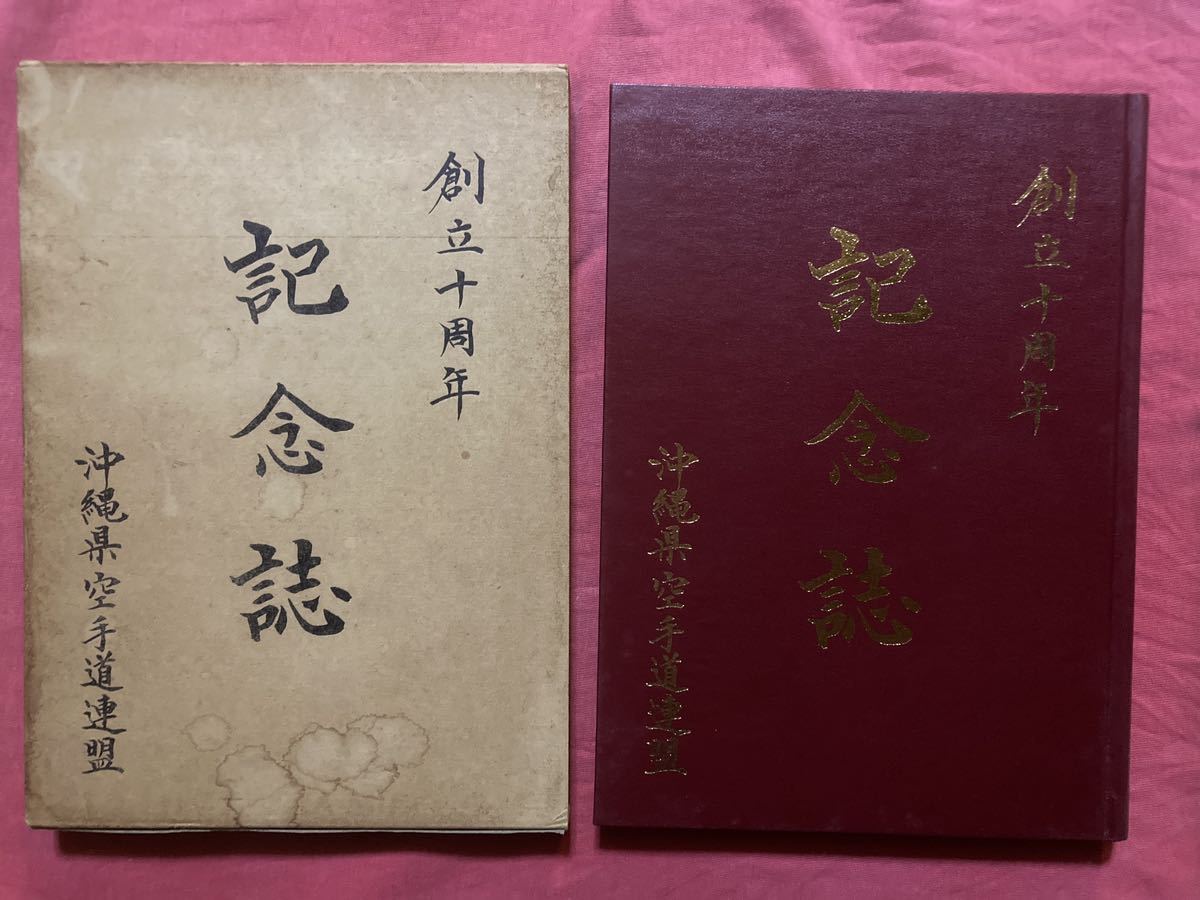 創立十周年
記念誌
沖縄県空手道連盟
創立十周年
記念誌
沖縄県空手道連盟